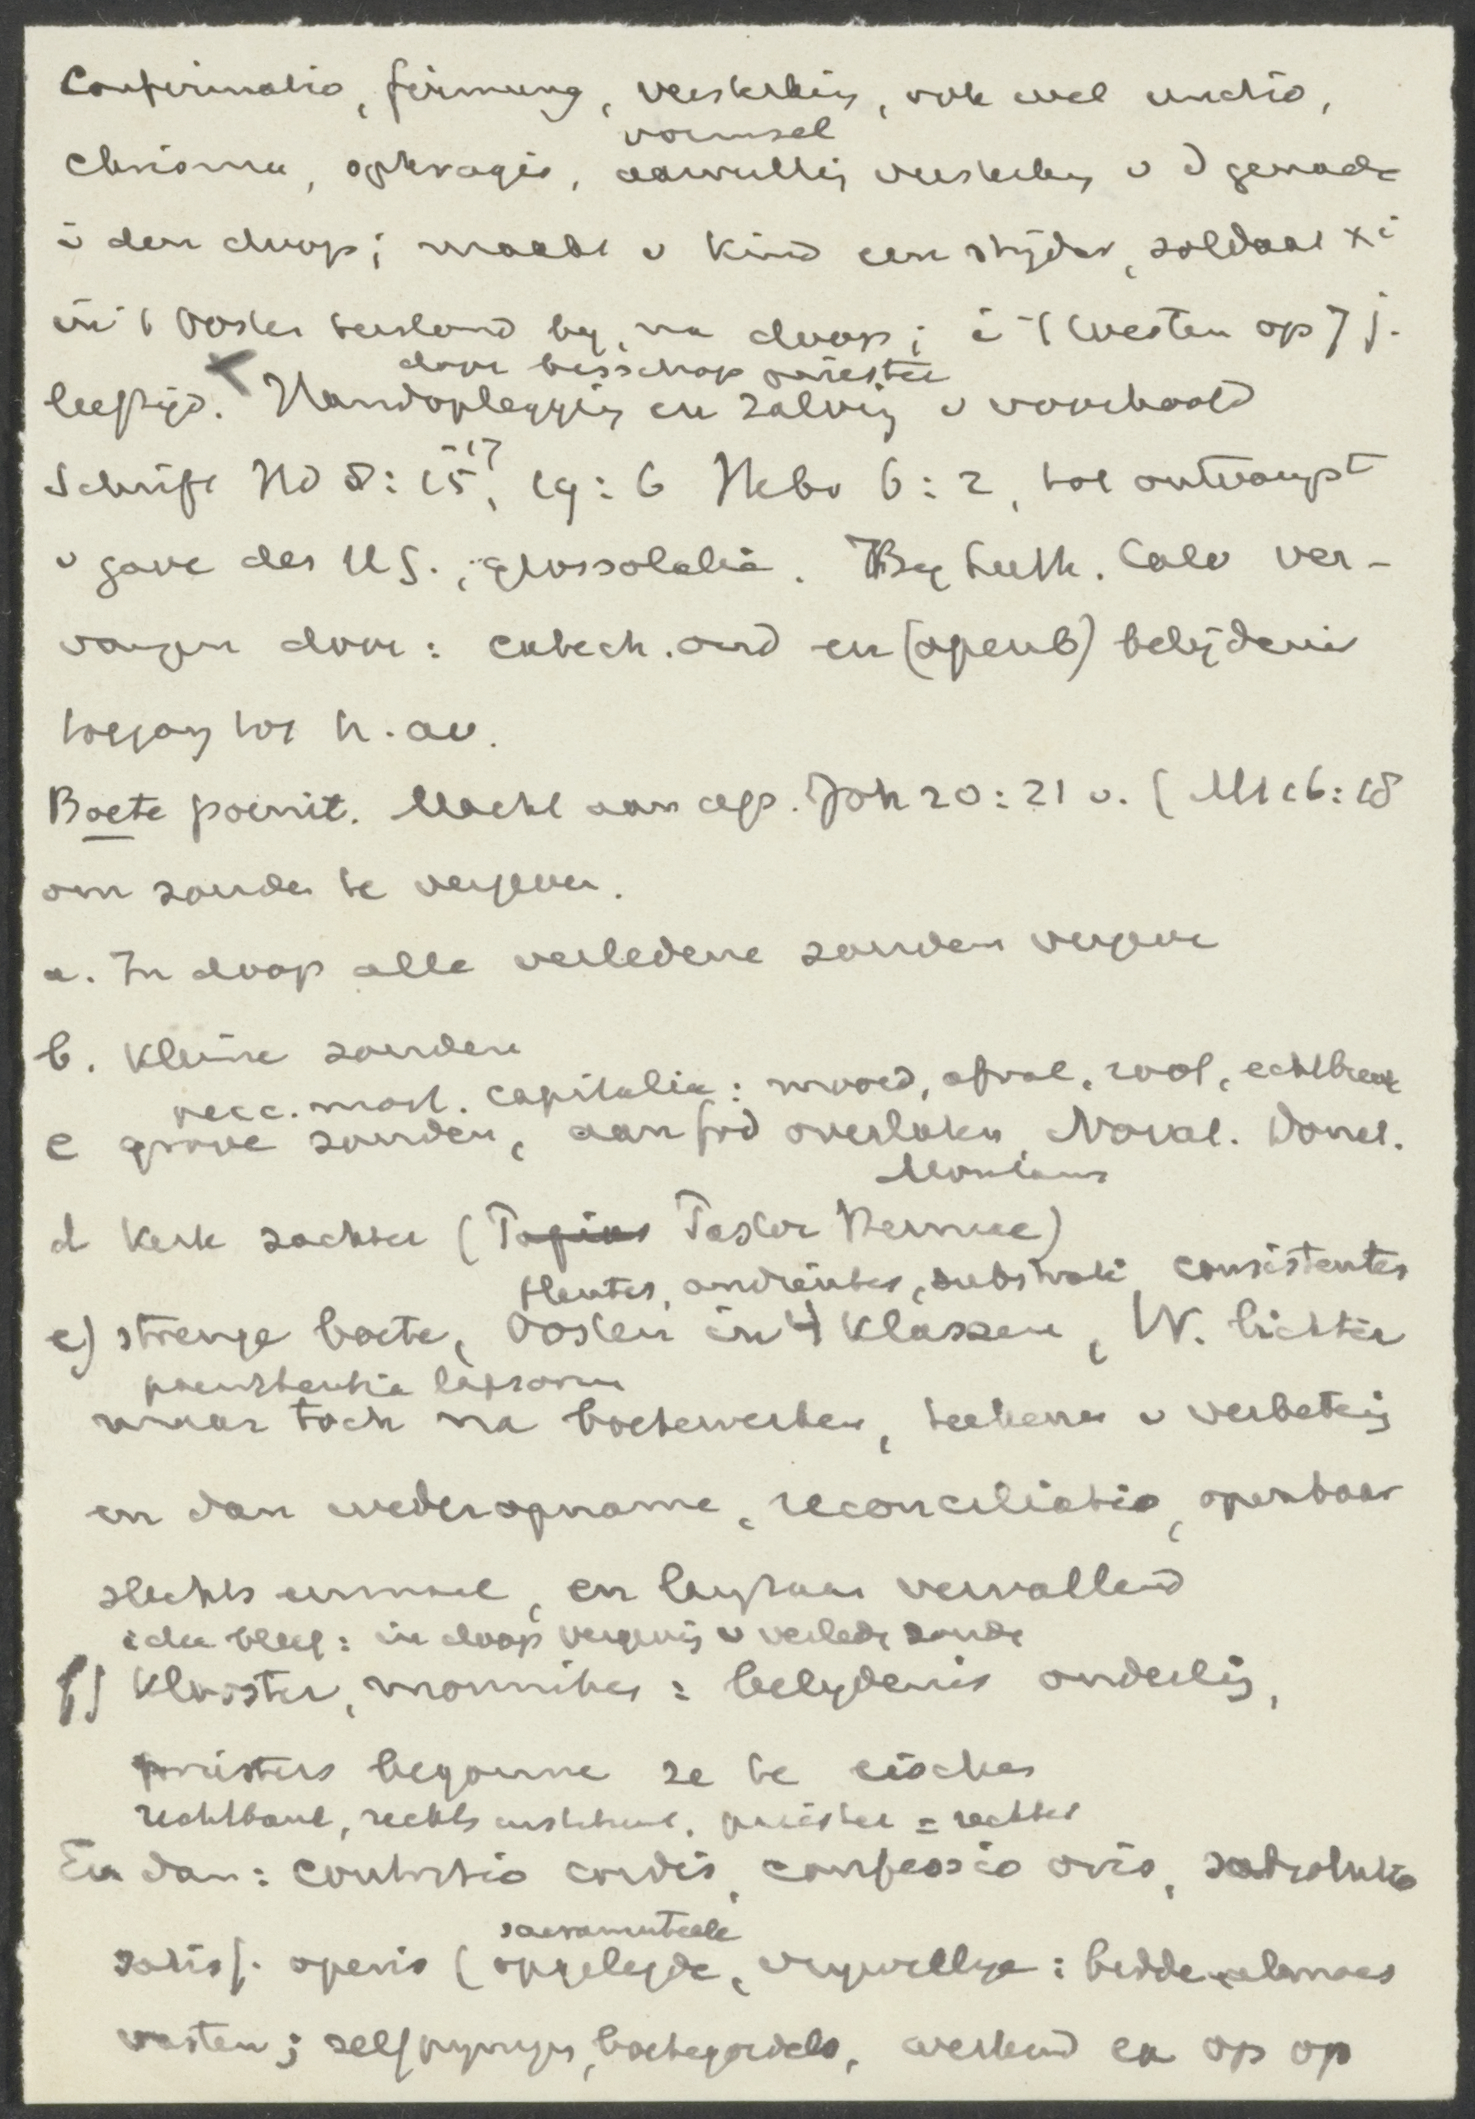 Confirmatio, firmung, versterking, ook wel unctio,
vormsel
chrisma, sphragis, aanvulling versterking v d genade
i den doop; maakt v kind een strijder, soldaat Xi
in 't Oosten terstond bij, na doop; i 't Westen op 7 j.
door bisschop priester
leeftijd. Handoplegging en zalving v voorhoofd
Schrift Hd 8:15-17, 19:6 Hebr 6:2, tot ontvangst
v gave des HG., glossolalie. Bij Luth. Calv ver-
vangen door: catech. ond en (openb) belijdenis
toegang tot h. av.
Boete poenit. Macht aan ap. Joh 20:21 v. (Mt 16:18
om zonden te vergeven.
a. In doop alle verledene zonden vergeve
b. Kleine zonden
pecc. mort. capitalia: moord, afval, roof, echtbreuk
c grove zonden, aan God overlaten Novat. Donat.
Montanus
d Kerk zachter (Pastor Hermae)
flentes, audientes, substrati consistentes
e) strenge boete, Oosten in 4 Klassen, W. lichter
poenitentia lapsorum
maar toch na boetewerken, teekenen v verbetering
en dan wederopname, reconciliatio, openbaar
slechts eenmaal, en langzaam vervallend
idee bleef: in doop vergeving v verlede zonde
f) Klooster, monniken: belydenis onderling,
priesters begonne ze te eischen
rechtbank, rechts instituut. priester = rechter
En dan: contritio cordis, confessio oris,
sacramenteele
satisf. operis (opgelegde, vrywillige: bidde, aalmoes
vasten; zelfpyniging, boetegordels, werkend ex op op